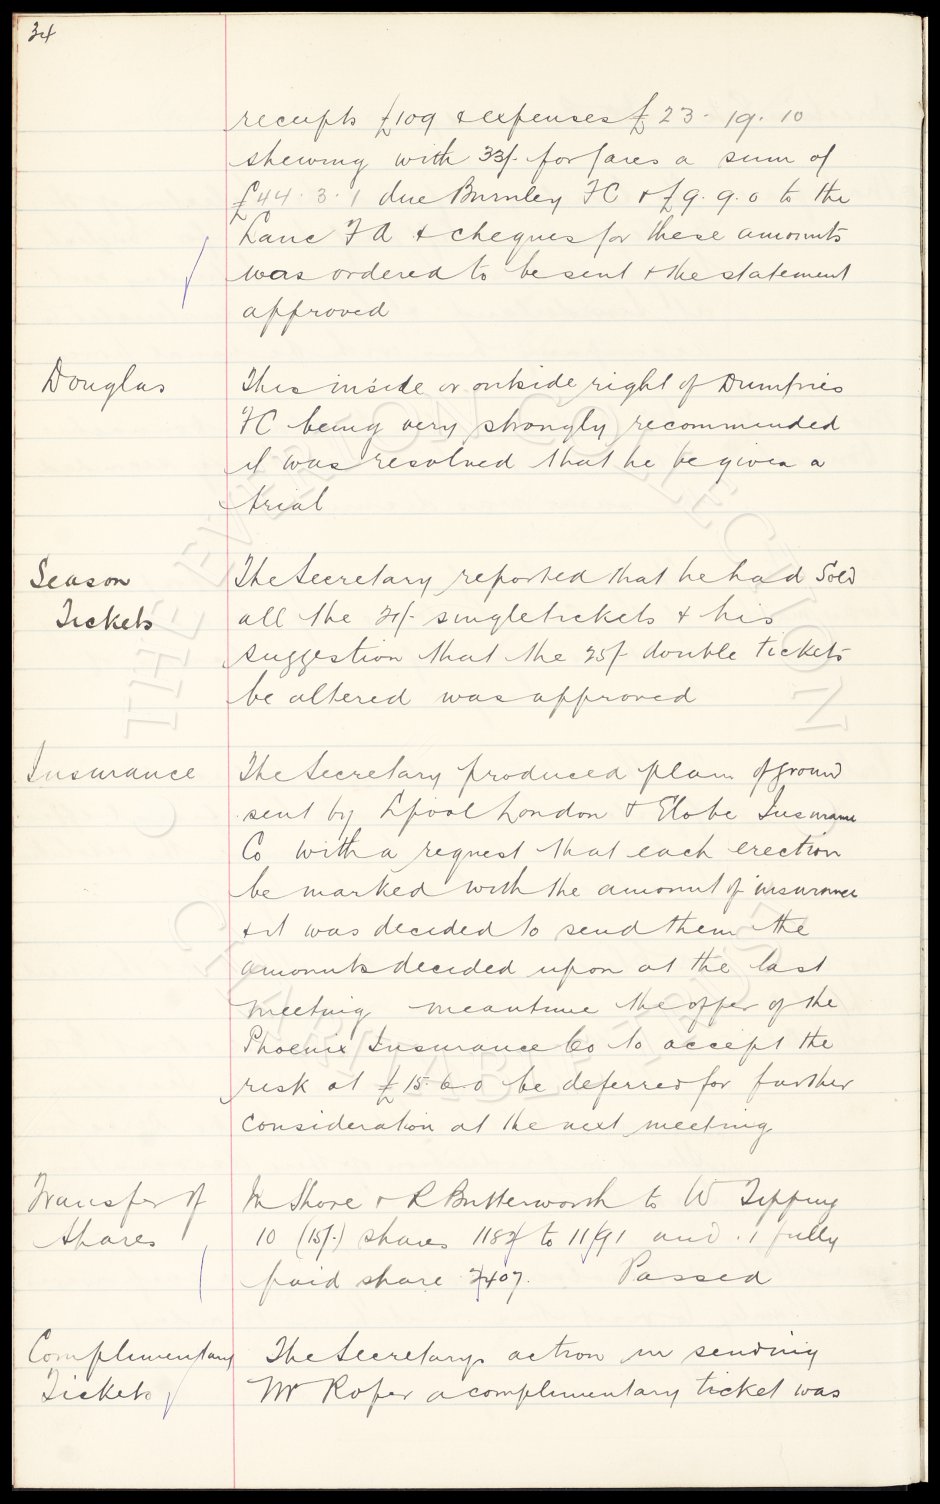 34
receipts £109 & expenses £23-19.10
shewing with 33/- for fares a sum of
£44.3.1 due Burnley FC & £9.9.0 to the
Lanc FA & cheques for these amounts
was ordered to be sent & the statement
approved
Douglas
This inside or outside right of Dumfries
FC being very strongly recommended
it was resolved that he be given a
trial
Season
Tickets
The Secretary reported that he had Sold
all the 21/- single tickets & his
suggestion that the 25/- double tickets
be altered was approved
Insurance
The Secretary produced plan of ground
sent by Lpool London & Globe Insurance
Co with a request that each erection
be marked with the amount of insurance
& it was decided to send them the
amounts decided upon at the last
meeting meantime the offer of the
Phoenix Insurance Co to accept the
risk at £15.6.0 be deferred for further
consideration at the next meeting
Transfer of
Shares
M Shore & R Butterworth to W Tipping
10 (15/-) shares 1182 to 1191 and 1 fully
paid share 2407. Passed
Complimentary
Tickets
The Secretarys action in sending
Mr Roper a complimentary ticket was
© THE EVERTON COLLECTION
CHARITABLE TRUST